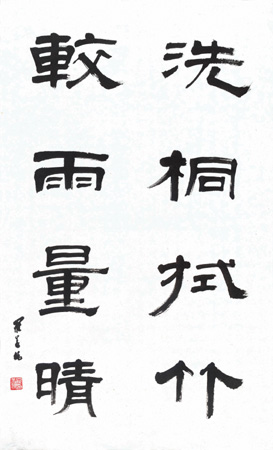 洗桐拭竹
較雨量晴